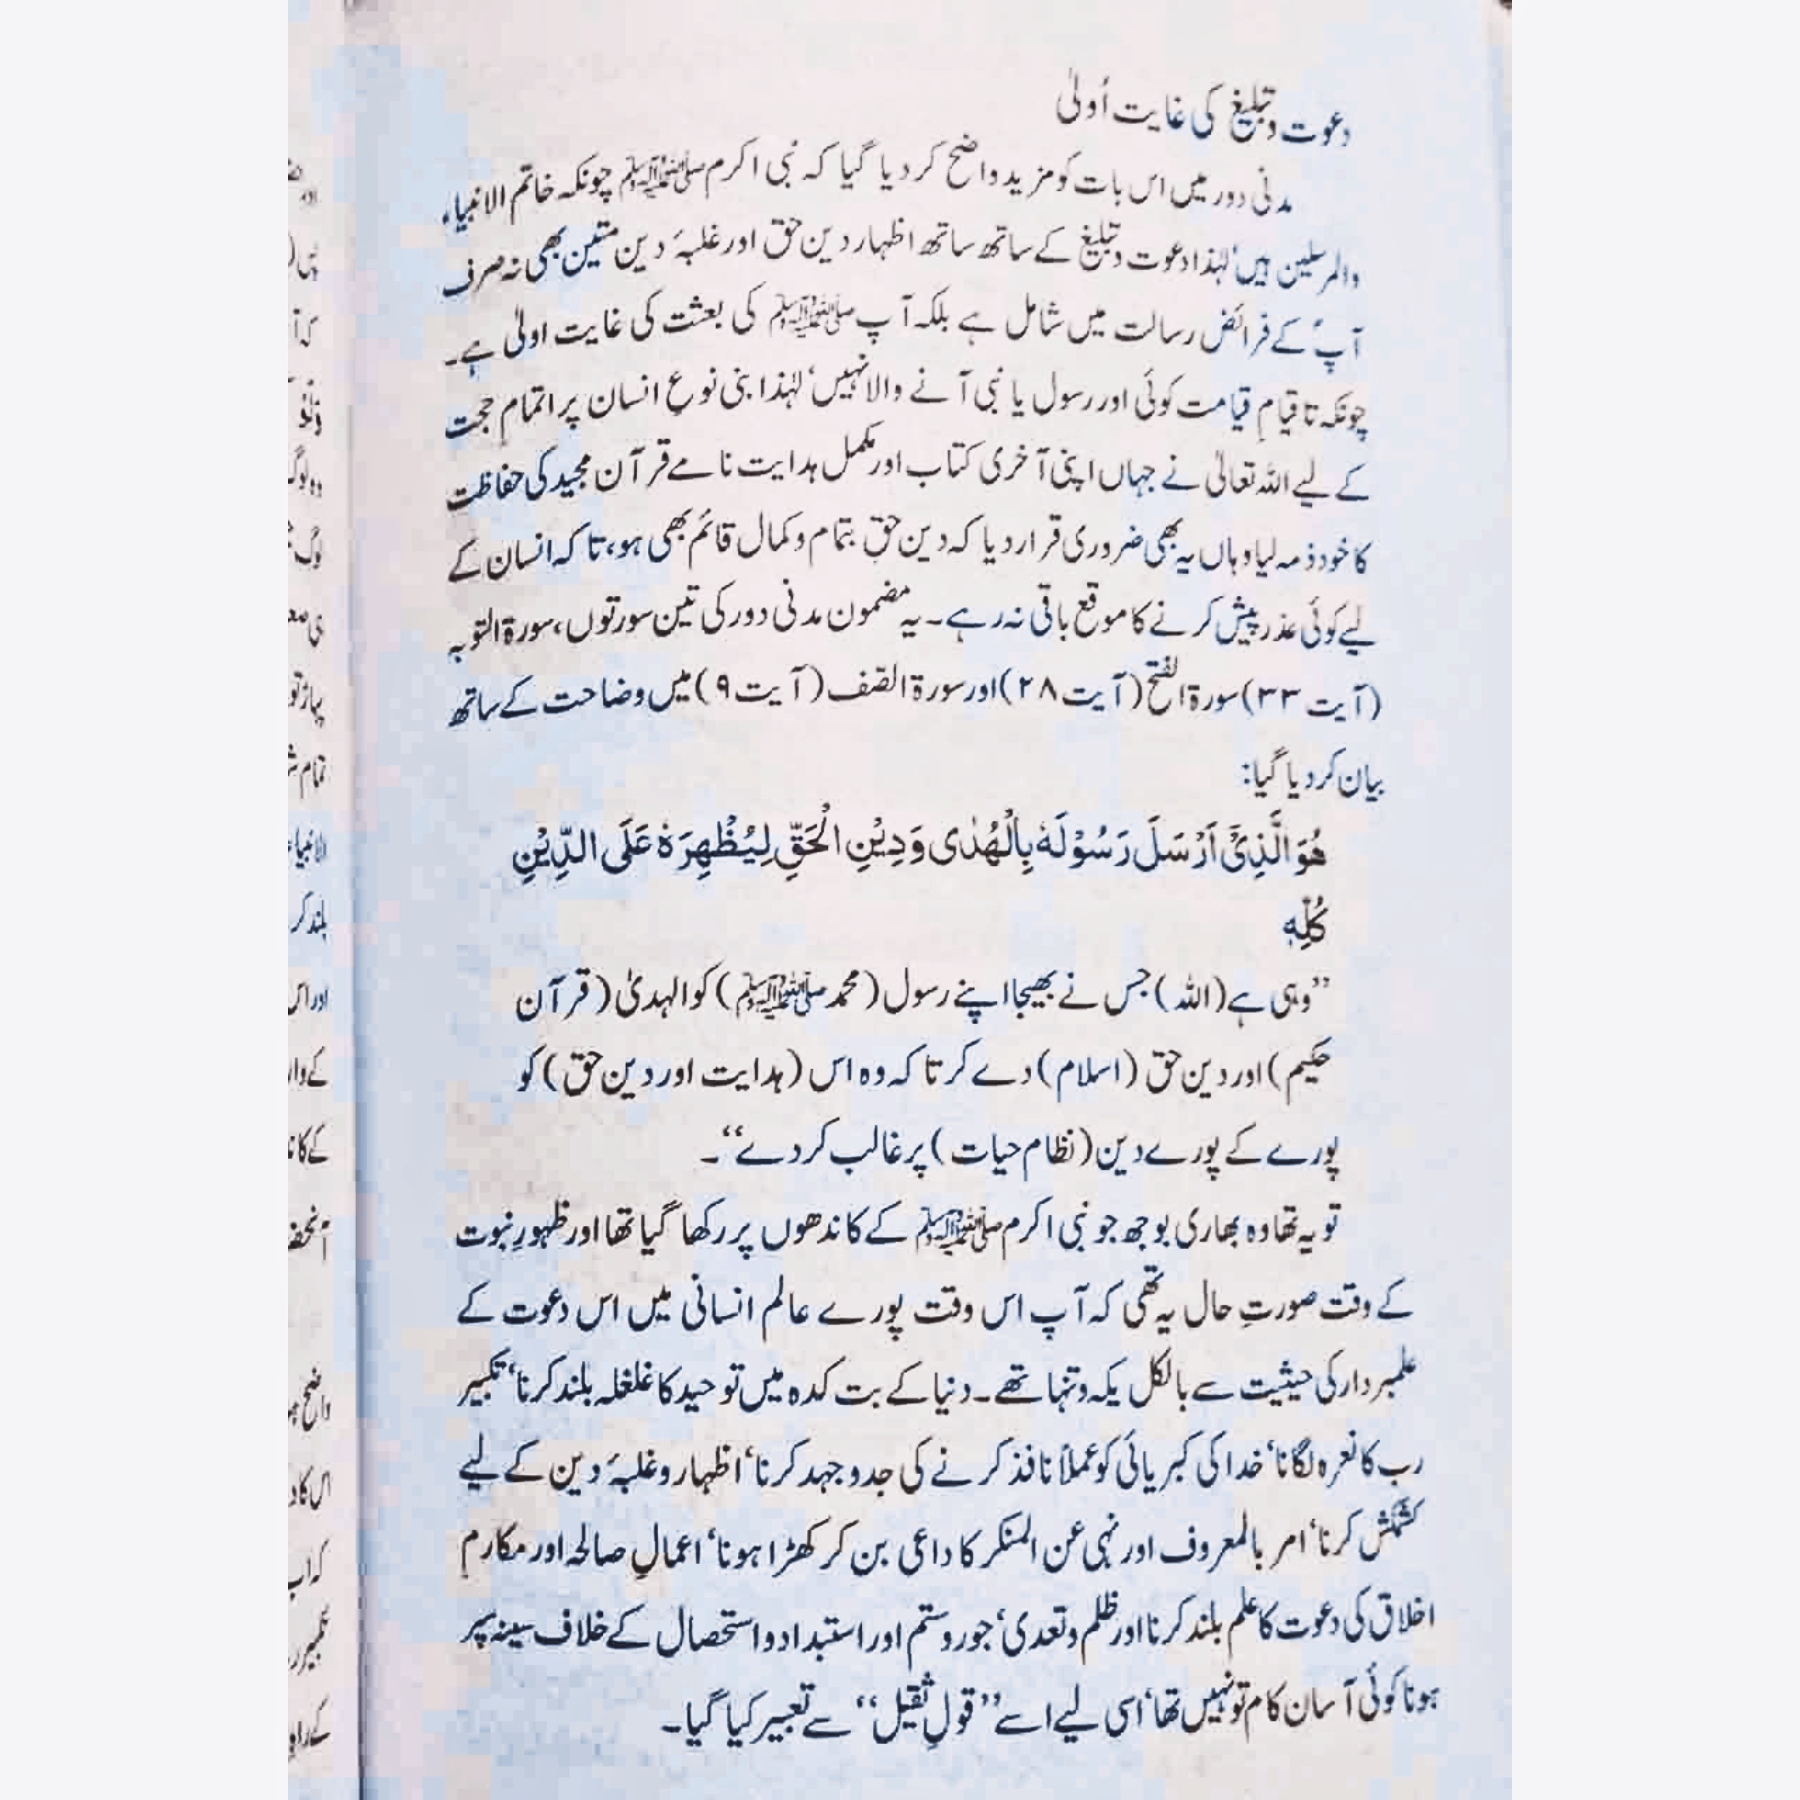 دعوت و تبلیغ کی غایت اُولیٰ
مدنی دور میں اس بات کو مزید واضح کر دیا گیا کہ نبی اکرم ﷺ چونکہ خاتم الانبیاء
والمرسلین ہیں‘ لہٰذا دعوت و تبلیغ کے ساتھ ساتھ اظہار دین حق اور غلبۂ دین متین بھی نہ صرف
آپؐ کے فرائض رسالت میں شامل ہے بلکہ آپ ﷺ کی بعثت کی غایت اولیٰ ہے۔
چونکہ تا قیامِ قیامت کوئی اور رسول یا نبی آنے والا نہیں‘ لہٰذا بنی نوعِ انسان پر اتمامِ حجت
کے لیے اللہ تعالیٰ نے جہاں اپنی آخری کتاب اور مکمل ہدایت نامے قرآن مجید کی حفاظت
کا خود ذمہ لیا وہاں یہ بھی ضروری قرار دیا کہ دین حق بتمام و کمال قائم بھی ہو، تا کہ انسان کے
لیے کوئی عذر پیش کرنے کا موقع باقی نہ رہے۔ یہ مضمون مدنی دور کی تین سورتوں، سورۃ التوبہ
(آیت ۳۳) سورۃ الفتح (آیت ۲۸) اور سورۃ الصّف (آیت ۹) میں وضاحت کے ساتھ
بیان کر دیا گیا:
هُوَ الَّذِیْۤ اَرْسَلَ رَسُوْلَهٗ بِالْهُدٰی وَدِیْنِ الْحَقِّ لِیُظْهِرَهٗ عَلَی الدِّیْنِ
كُلِّهٖ
’’وہی ہے (اللہ) جس نے بھیجا اپنے رسول (محمد ﷺ) کو الہدیٰ (قرآن
حکیم) اور دین حق (اسلام) دے کر تا کہ وہ اس (ہدایت اور دین حق) کو
پورے کے پورے دین (نظام حیات) پر غالب کر دے‘‘۔
تو یہ تھا وہ بھاری بوجھ جو نبی اکرم ﷺ کے کاندھوں پر رکھا گیا تھا اور ظہورِ نبوت
کے وقت صورتِ حال یہ تھی کہ آپ اس وقت پورے عالم انسانی میں اس دعوت کے
علمبردار کی حیثیت سے بالکل یکہ و تنہا تھے۔ دنیا کے بت کدہ میں توحید کا غلغلہ بلند کرنا‘ تکبیر
رب کا نعرہ لگانا‘ خدا کی کبریائی کو عملاً نافذ کرنے کی جدوجہد کرنا‘ اظہار و غلبۂ دین کے لیے
کشمکش کرنا‘ امر بالمعروف اور نہی عن المنکر کا داعی بن کر کھڑا ہونا‘ اعمالِ صالحہ اور مکارمِ
اخلاق کی دعوت کا علم بلند کرنا اور ظلم و تعدی‘ جور و ستم اور استبداد و استحصال کے خلاف سینہ سپر
ہونا کوئی آسان کام تو نہیں تھا‘ اسی لیے اسے ’’قولِ ثقیل‘‘ سے تعبیر کیا گیا۔